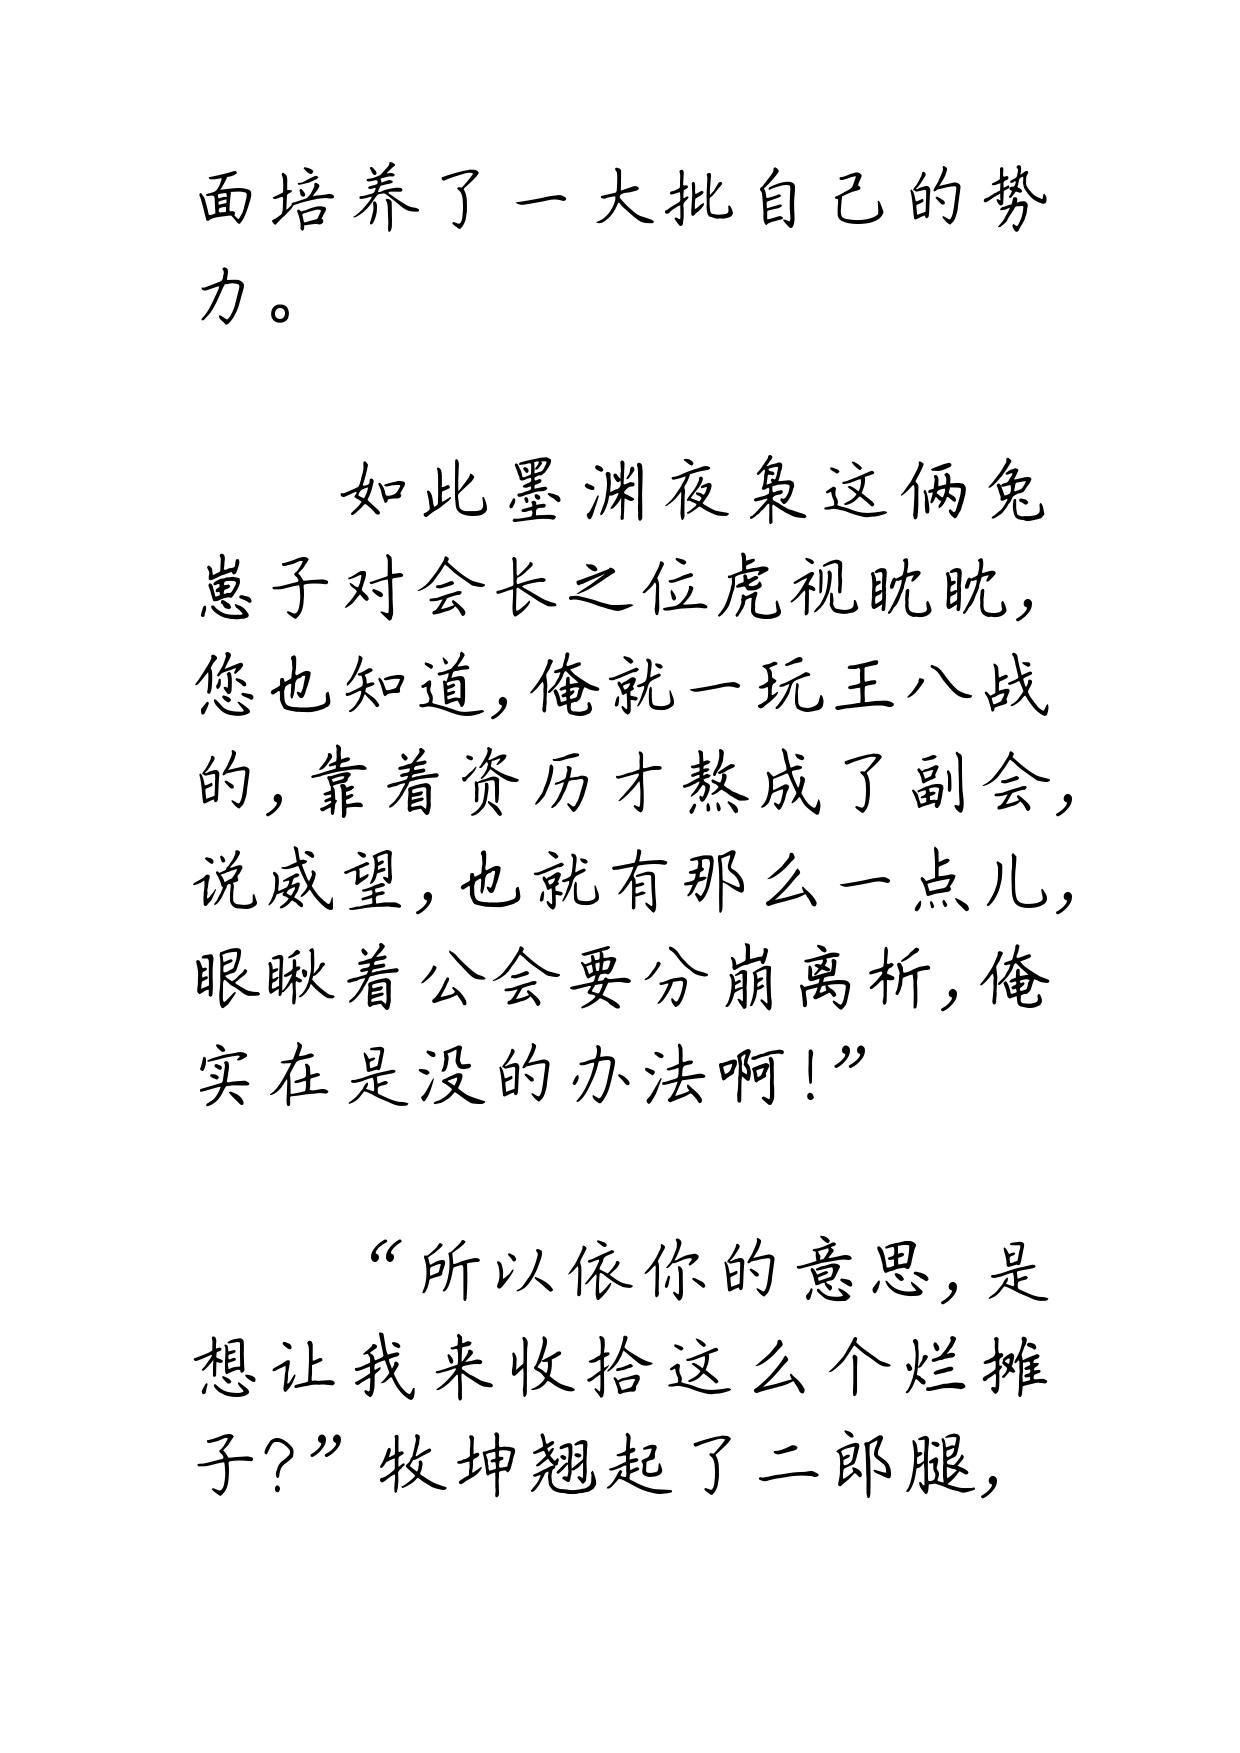 面培养了一大批自己的势
力。
如此墨渊夜枭这俩兔
崽子对会长之位虎视眈眈，
您也知道，俺就一玩王八战
的，靠着资历才熬成了副会，
说威望，也就有那么一点儿，
眼瞅着公会要分崩离析，俺
实在是没的办法啊！”
“所以依你的意思，是
想让我来收拾这么个烂摊
子？”牧坤翘起了二郎腿，